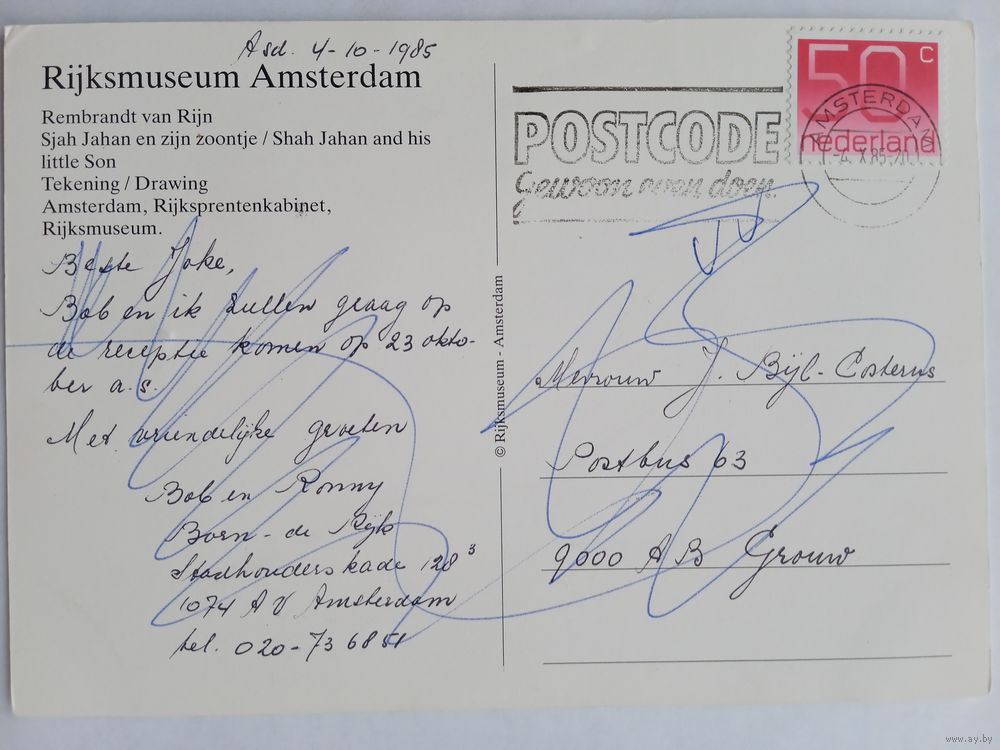 Asd. 4-10-1985
Rijksmuseum Amsterdam
Rembrandt van Rijn
Sjah Jahan en zijn zoontje / Shah Jahan and his
little Son
Tekening / Drawing
Amsterdam, Rijksprentenkabinet,
Rijksmuseum.
Beste Joke,
Bob en ik zullen graag op
de receptie komen op 23 okto-
ber a.s.
Met vriendelijke groeten
Bob en Ronny
Born - de Rijk
Stadhouderskade 128³
1074 AV Amsterdam
tel. 020-73 68 51
© Rijksmuseum - Amsterdam
POSTCODE
Gewoon even doen.
50 c
nederland
AMSTERDAM
Mevrouw J. Bijl-Costerus
Postbus 63
9000 AB Grouw
www.ay.by